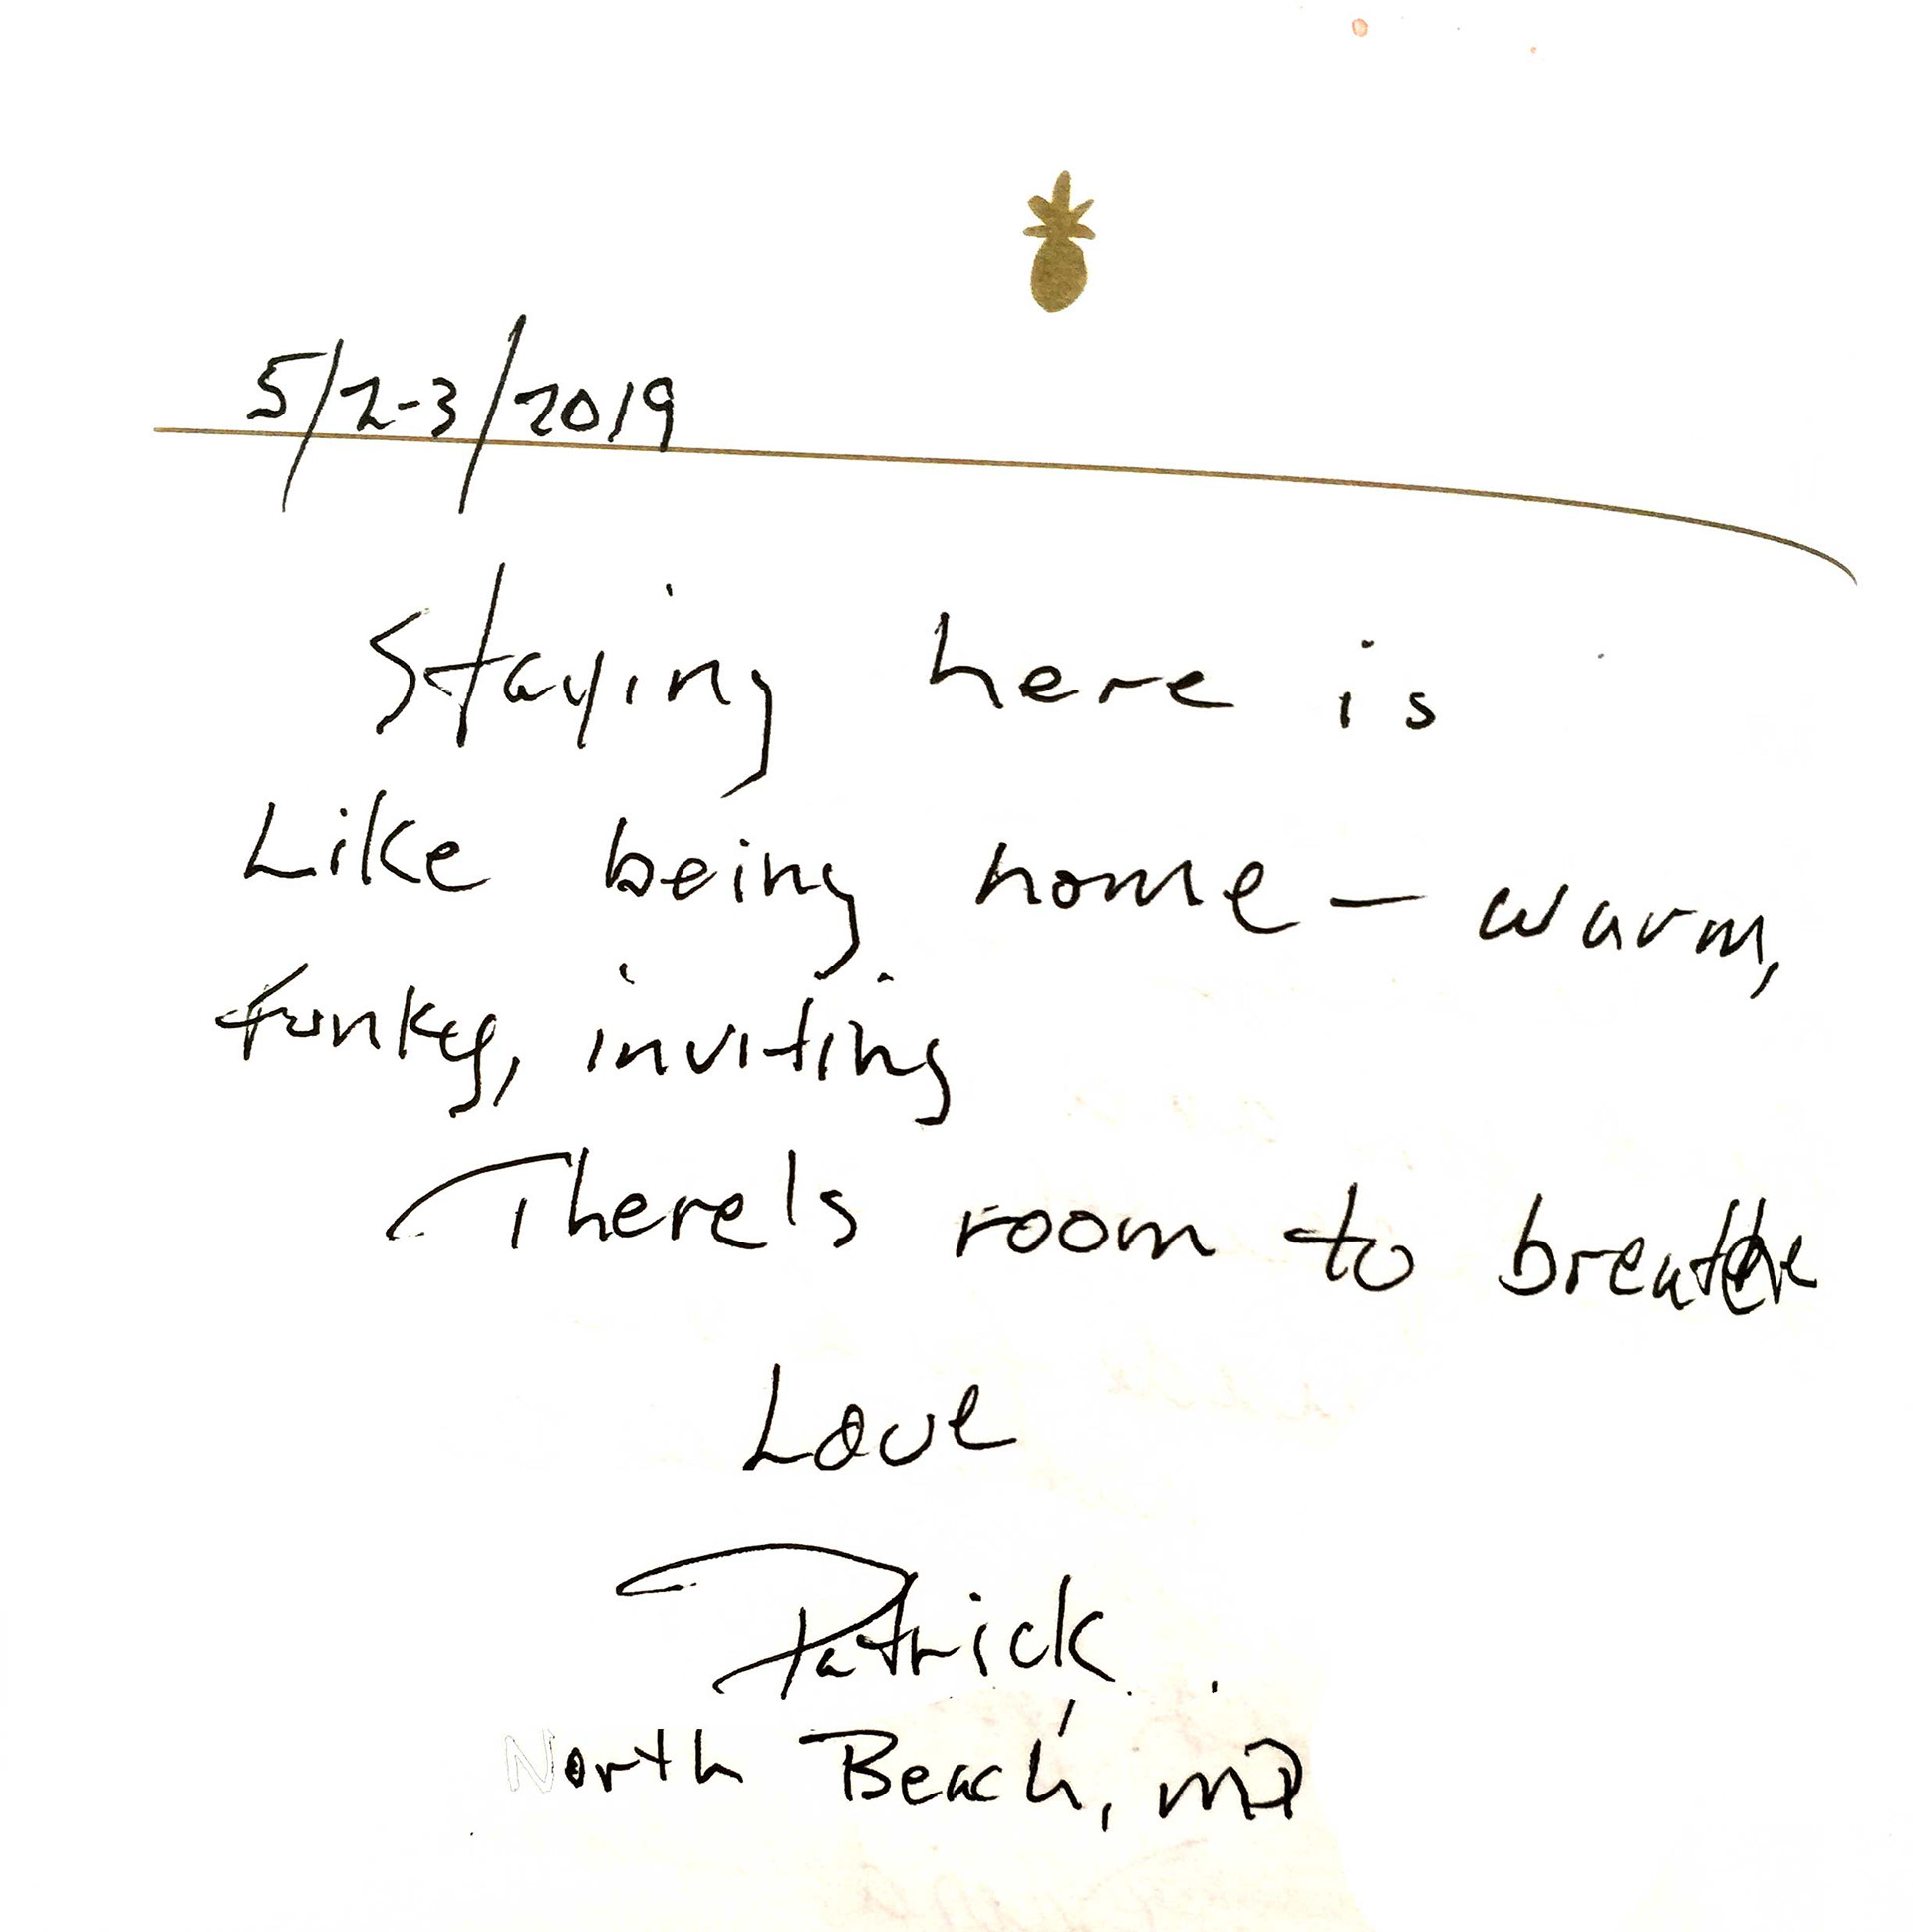 5/2-3/2019
Staying here is
Like being home — warm,
funky, inviting
There's room to breathe
Love
Patrick
North Beach, MD